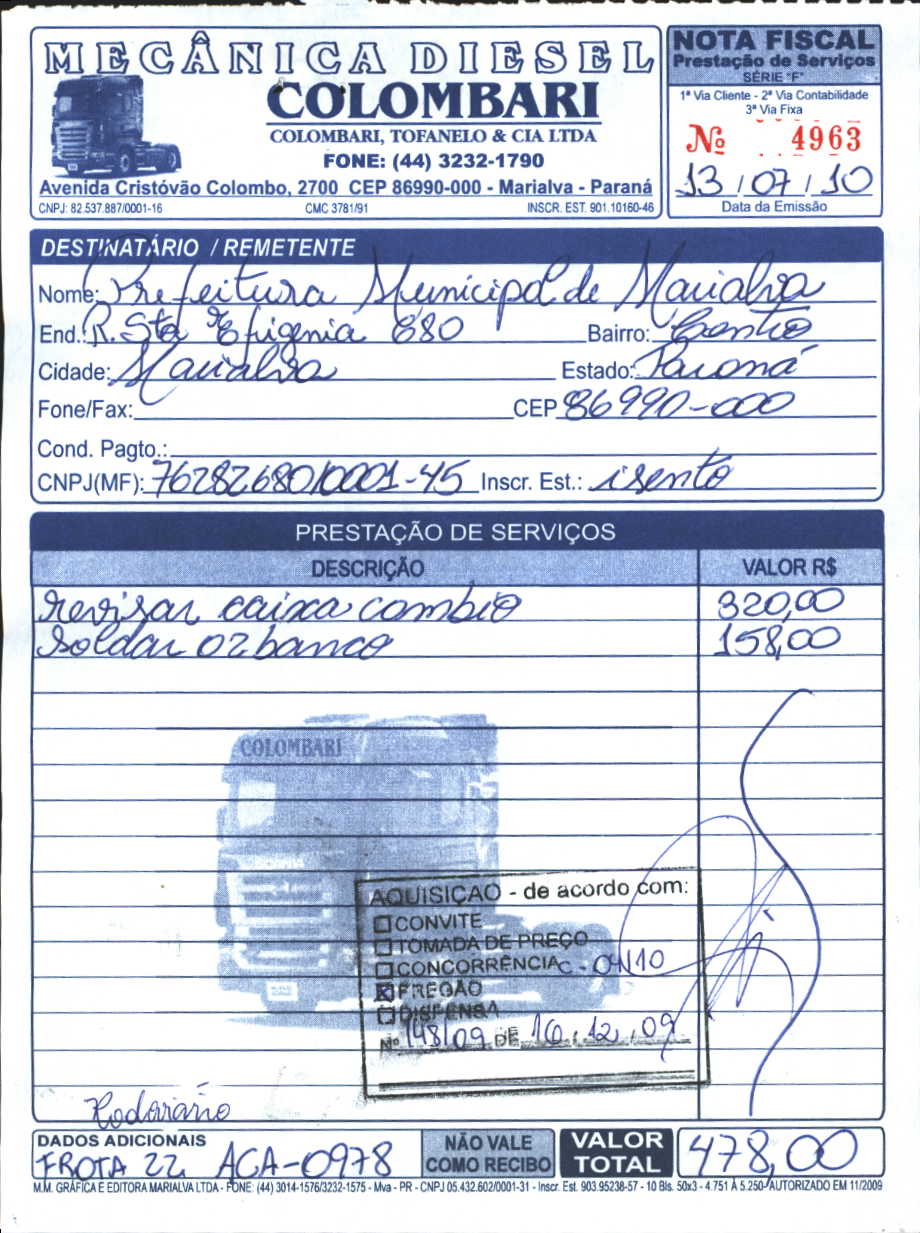 MECÂNICA DIESEL
COLOMBARI
COLOMBARI, TOFANELO & CIA LTDA
FONE: (44) 3232-1790
Avenida Cristóvão Colombo, 2700 CEP 86990-000 - Marialva - Paraná
CNPJ: 82.537.887/0001-16 CMC 3781/91 INSCR. EST. 901.10160-46
NOTA FISCAL
Prestação de Serviços
SÉRIE "F"
1ª Via Cliente - 2ª Via Contabilidade
3ª Via Fixa
Nº 4963
13 / 07 / 10
Data da Emissão
DESTINATÁRIO / REMETENTE
Nome: Prefeitura Municipal de Marialva
End.: R. Sta Efigenia 680 Bairro: Centro
Cidade: Marialva Estado: Paraná
Fone/Fax: CEP 86990-000
Cond. Pagto.:
CNPJ(MF): 76282680/0001-45 Inscr. Est.: isento
PRESTAÇÃO DE SERVIÇOS
DESCRIÇÃO VALOR R$
revisar caixa cambio 320,00
soldar 02 banco 158,00
COLOMBARI
AQUISIÇÃO - de acordo com:
CONVITE
TOMADA DE PREÇO
CONCORRÊNCIA C-04/10
PREGÃO
DISPENSA
Nº 148/09 DE 10, 12, 09
Rodoviário
DADOS ADICIONAIS
FROTA 22 ACA-0978
NÃO VALE
COMO RECIBO
VALOR
TOTAL
478,00
M.M. GRÁFICA E EDITORA MARIALVA LTDA - FONE: (44) 3014-1576/3232-1575 - Mva - PR - CNPJ 05.432.602/0001-31 - Inscr. Est. 903.95238-57 - 10 Bls. 50x3 - 4.751 À 5.250 - AUTORIZADO EM 11/2009